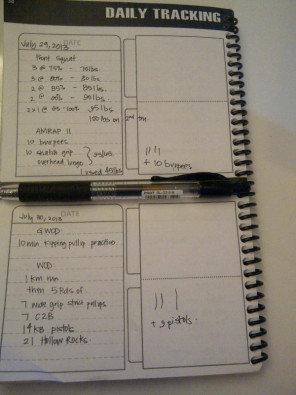 DAILY TRACKING
July 29, 2013 DATE
Front Squat
3 @ 75% - 75lbs
3 @ 80% - 80lbs
2 @ 85% - 85lbs
2 @ 90% - 90lbs
95lbs
100 lbs on 2nd try
AMRAP 11
10 burpees
10 snatch grip
overhead lunge
I used 45lbs
+ 10 burpees
July 30, 2013 DATE
GWOD
10 min kipping pullup practice
WOD
1 km run
then 5 Rds of
7 wide grip strict pullups
7 C2B
14 KB pistols
21 Hollow Rocks
+ 3 pistols